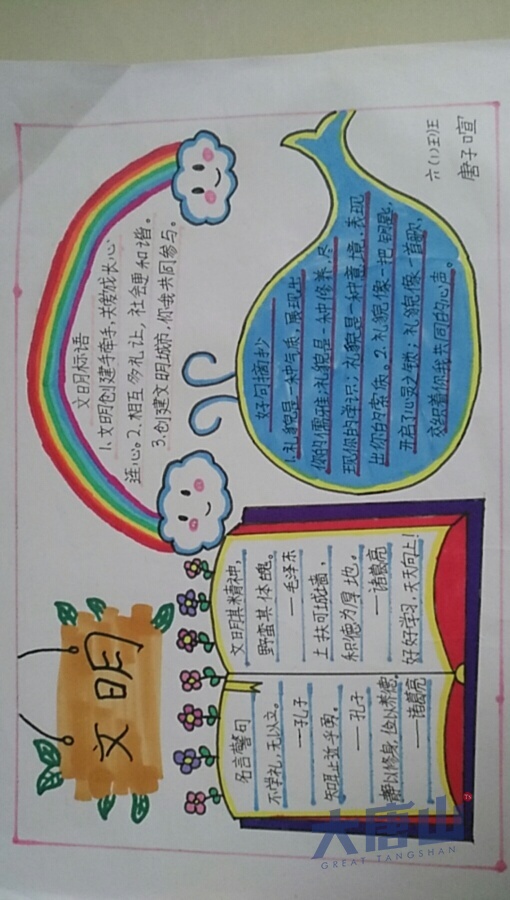 文明
文明标语
1.文明创建手牵手,关爱成长心
连心。2.相互多礼让,社会更和谐。
3.创建文明城市,你我共同参与。
名言警句
不学礼,无以立。
——孔子
知耻近乎勇。
——孔子
静以修身,俭以养德。
——诸葛亮
文明其精神,
野蛮其体魄。
——毛泽东
土扶可城墙,
积德为厚地。
——诸葛亮
好好学习,天天向上!
好句摘抄
1.礼貌是一种气质,展现出
你的儒雅;礼貌是一种修养,尽
现你的学识;礼貌是一种意境,表现
出你的素质。2.礼貌像一把钥匙,
开启了心灵之锁;礼貌像一首歌,
交织着你我共同的心声。
六(1)班
唐子喧
大唐山
GREAT TANGSHAN